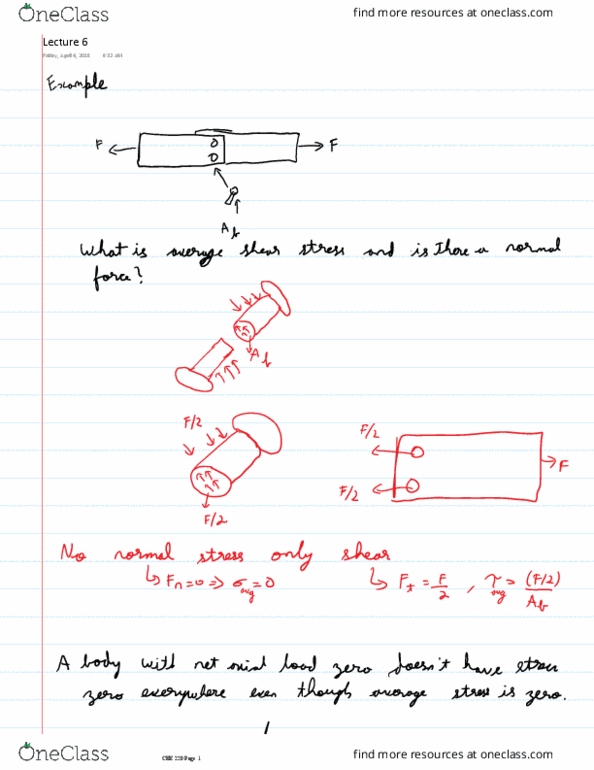 OneClass
find more resources at oneclass.com
Lecture 6
Friday, April 6, 2018
Example
F
F
A_b
What is average shear stress and is there a normal
force?
A_b
F/2
F/2
F/2
F/2
F
No normal stress only shear
↳ F_n=0 ⇒ σ_avg=0 ↳ F_t = F/2 , τ_avg = (F/2)/A_b
A body with net axial load zero doesn't have stress
zero everywhere even though average stress is zero.
1
Page 1
OneClass
find more resources at oneclass.com